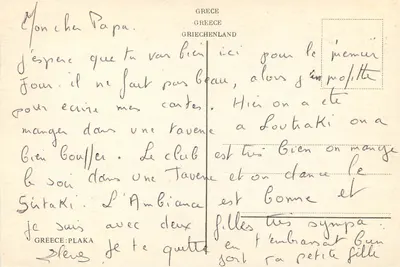 GRECE
GREECE
GRIECHENLAND
Mon cher Papa.
j'espère que tu vas bien ici pour le premier
Jour il ne fait pas beau, alors j'en profite
pour ecrire mes cartes. Hier on a été
manger dans une taverne a Loutraki on a
bien bouffer. Le club est très bien on mange
le soir dans une Taverne et on danse le
Sirtaki. L'Ambiance est bonne et
je suis avec deux filles très sympa.
GREECE: PLAKA
Je te quitte en t'embrassant bien
fort ta petite fille